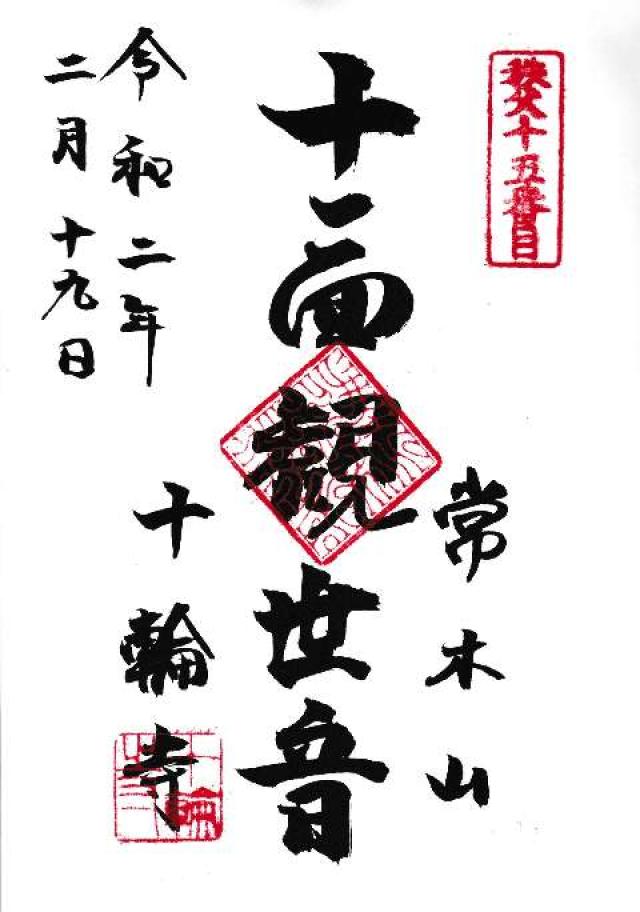 秩父十五番目
常木山
十一面観世音
十輪寺
令和二年
二月十九日